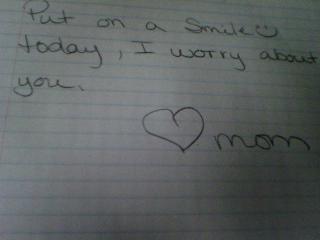 Put on a smile☺
today, I worry about
you.
♡ mom